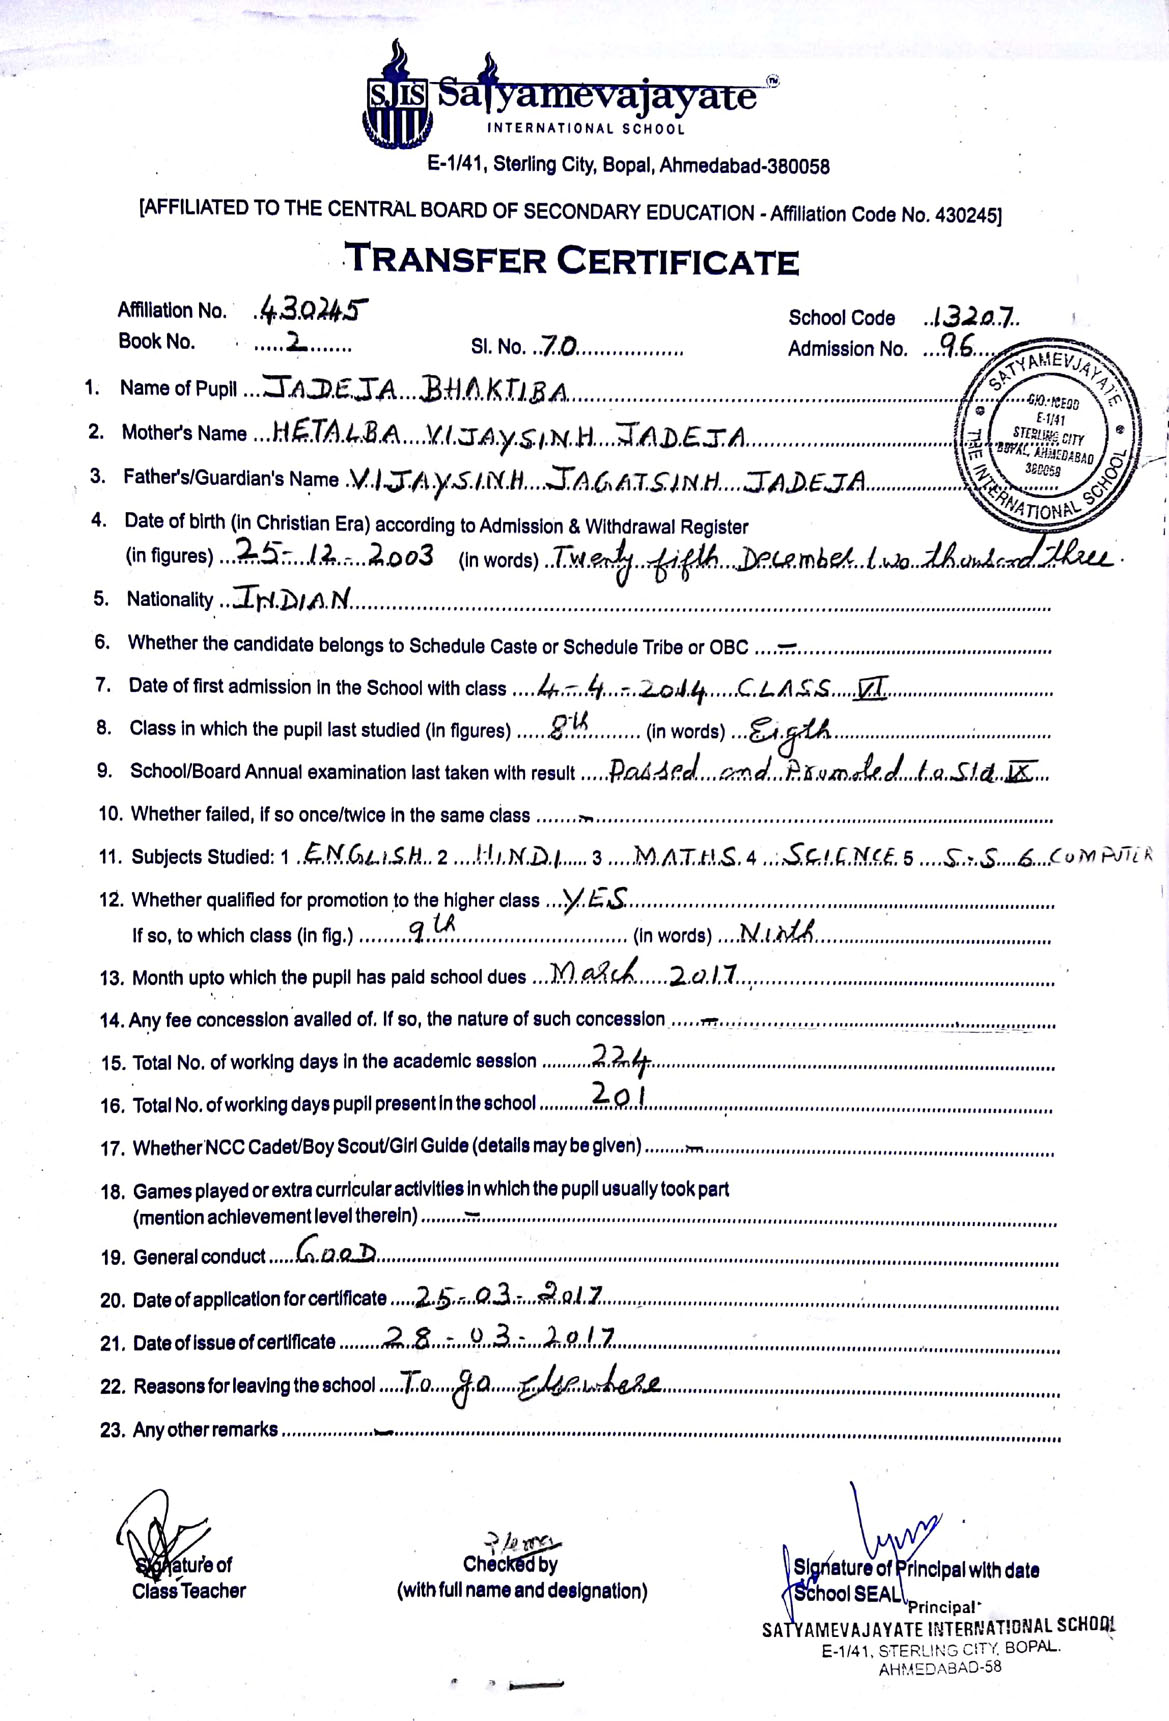 SJIS Satyamevajayate TM
INTERNATIONAL SCHOOL
E-1/41, Sterling City, Bopal, Ahmedabad-380058
[AFFILIATED TO THE CENTRAL BOARD OF SECONDARY EDUCATION - Affiliation Code No. 430245]
TRANSFER CERTIFICATE
Affiliation No. 430245 School Code 13207
Book No. 2 Sl. No. 70 Admission No. 96
SATYAMEVJAYATE THE INTERNATIONAL SCHOOL
E-1/41
STERLING CITY
BOPAL, AHMEDABAD
380058
1. Name of Pupil JADEJA BHAKTIBA
2. Mother's Name HETALBA VIJAYSINH JADEJA
3. Father's/Guardian's Name VIJAYSINH JAGATSINH JADEJA
4. Date of birth (in Christian Era) according to Admission & Withdrawal Register
(in figures) 25-12-2003 (in words) Twenty fifth December two thousand three.
5. Nationality INDIAN
6. Whether the candidate belongs to Schedule Caste or Schedule Tribe or OBC -
7. Date of first admission in the School with class 4-4-2014 CLASS VI
8. Class in which the pupil last studied (in figures) 8th (in words) Eigth
9. School/Board Annual examination last taken with result Passed and Promoted to Std IX
10. Whether failed, if so once/twice in the same class -
11. Subjects Studied: 1 ENGLISH 2 HINDI 3 MATHS 4 SCIENCE 5 S.S 6 COMPUTER
12. Whether qualified for promotion to the higher class YES
If so, to which class (in fig.) 9th (in words) Ninth
13. Month upto which the pupil has paid school dues March 2017
14. Any fee concession availed of. If so, the nature of such concession -
15. Total No. of working days in the academic session 224
16. Total No. of working days pupil present in the school 201
17. Whether NCC Cadet/Boy Scout/Girl Guide (details may be given) -
18. Games played or extra curricular activities in which the pupil usually took part
(mention achievement level therein) -
19. General conduct GOOD
20. Date of application for certificate 25-03-2017
21. Date of issue of certificate 28-03-2017
22. Reasons for leaving the school To go Elsewhere
23. Any other remarks -
Signature of Checked by Signature of Principal with date
Class Teacher (with full name and designation) School SEAL
Principal
SATYAMEVAJAYATE INTERNATIONAL SCHOOL
E-1/41, STERLING CITY, BOPAL.
AHMEDABAD-58